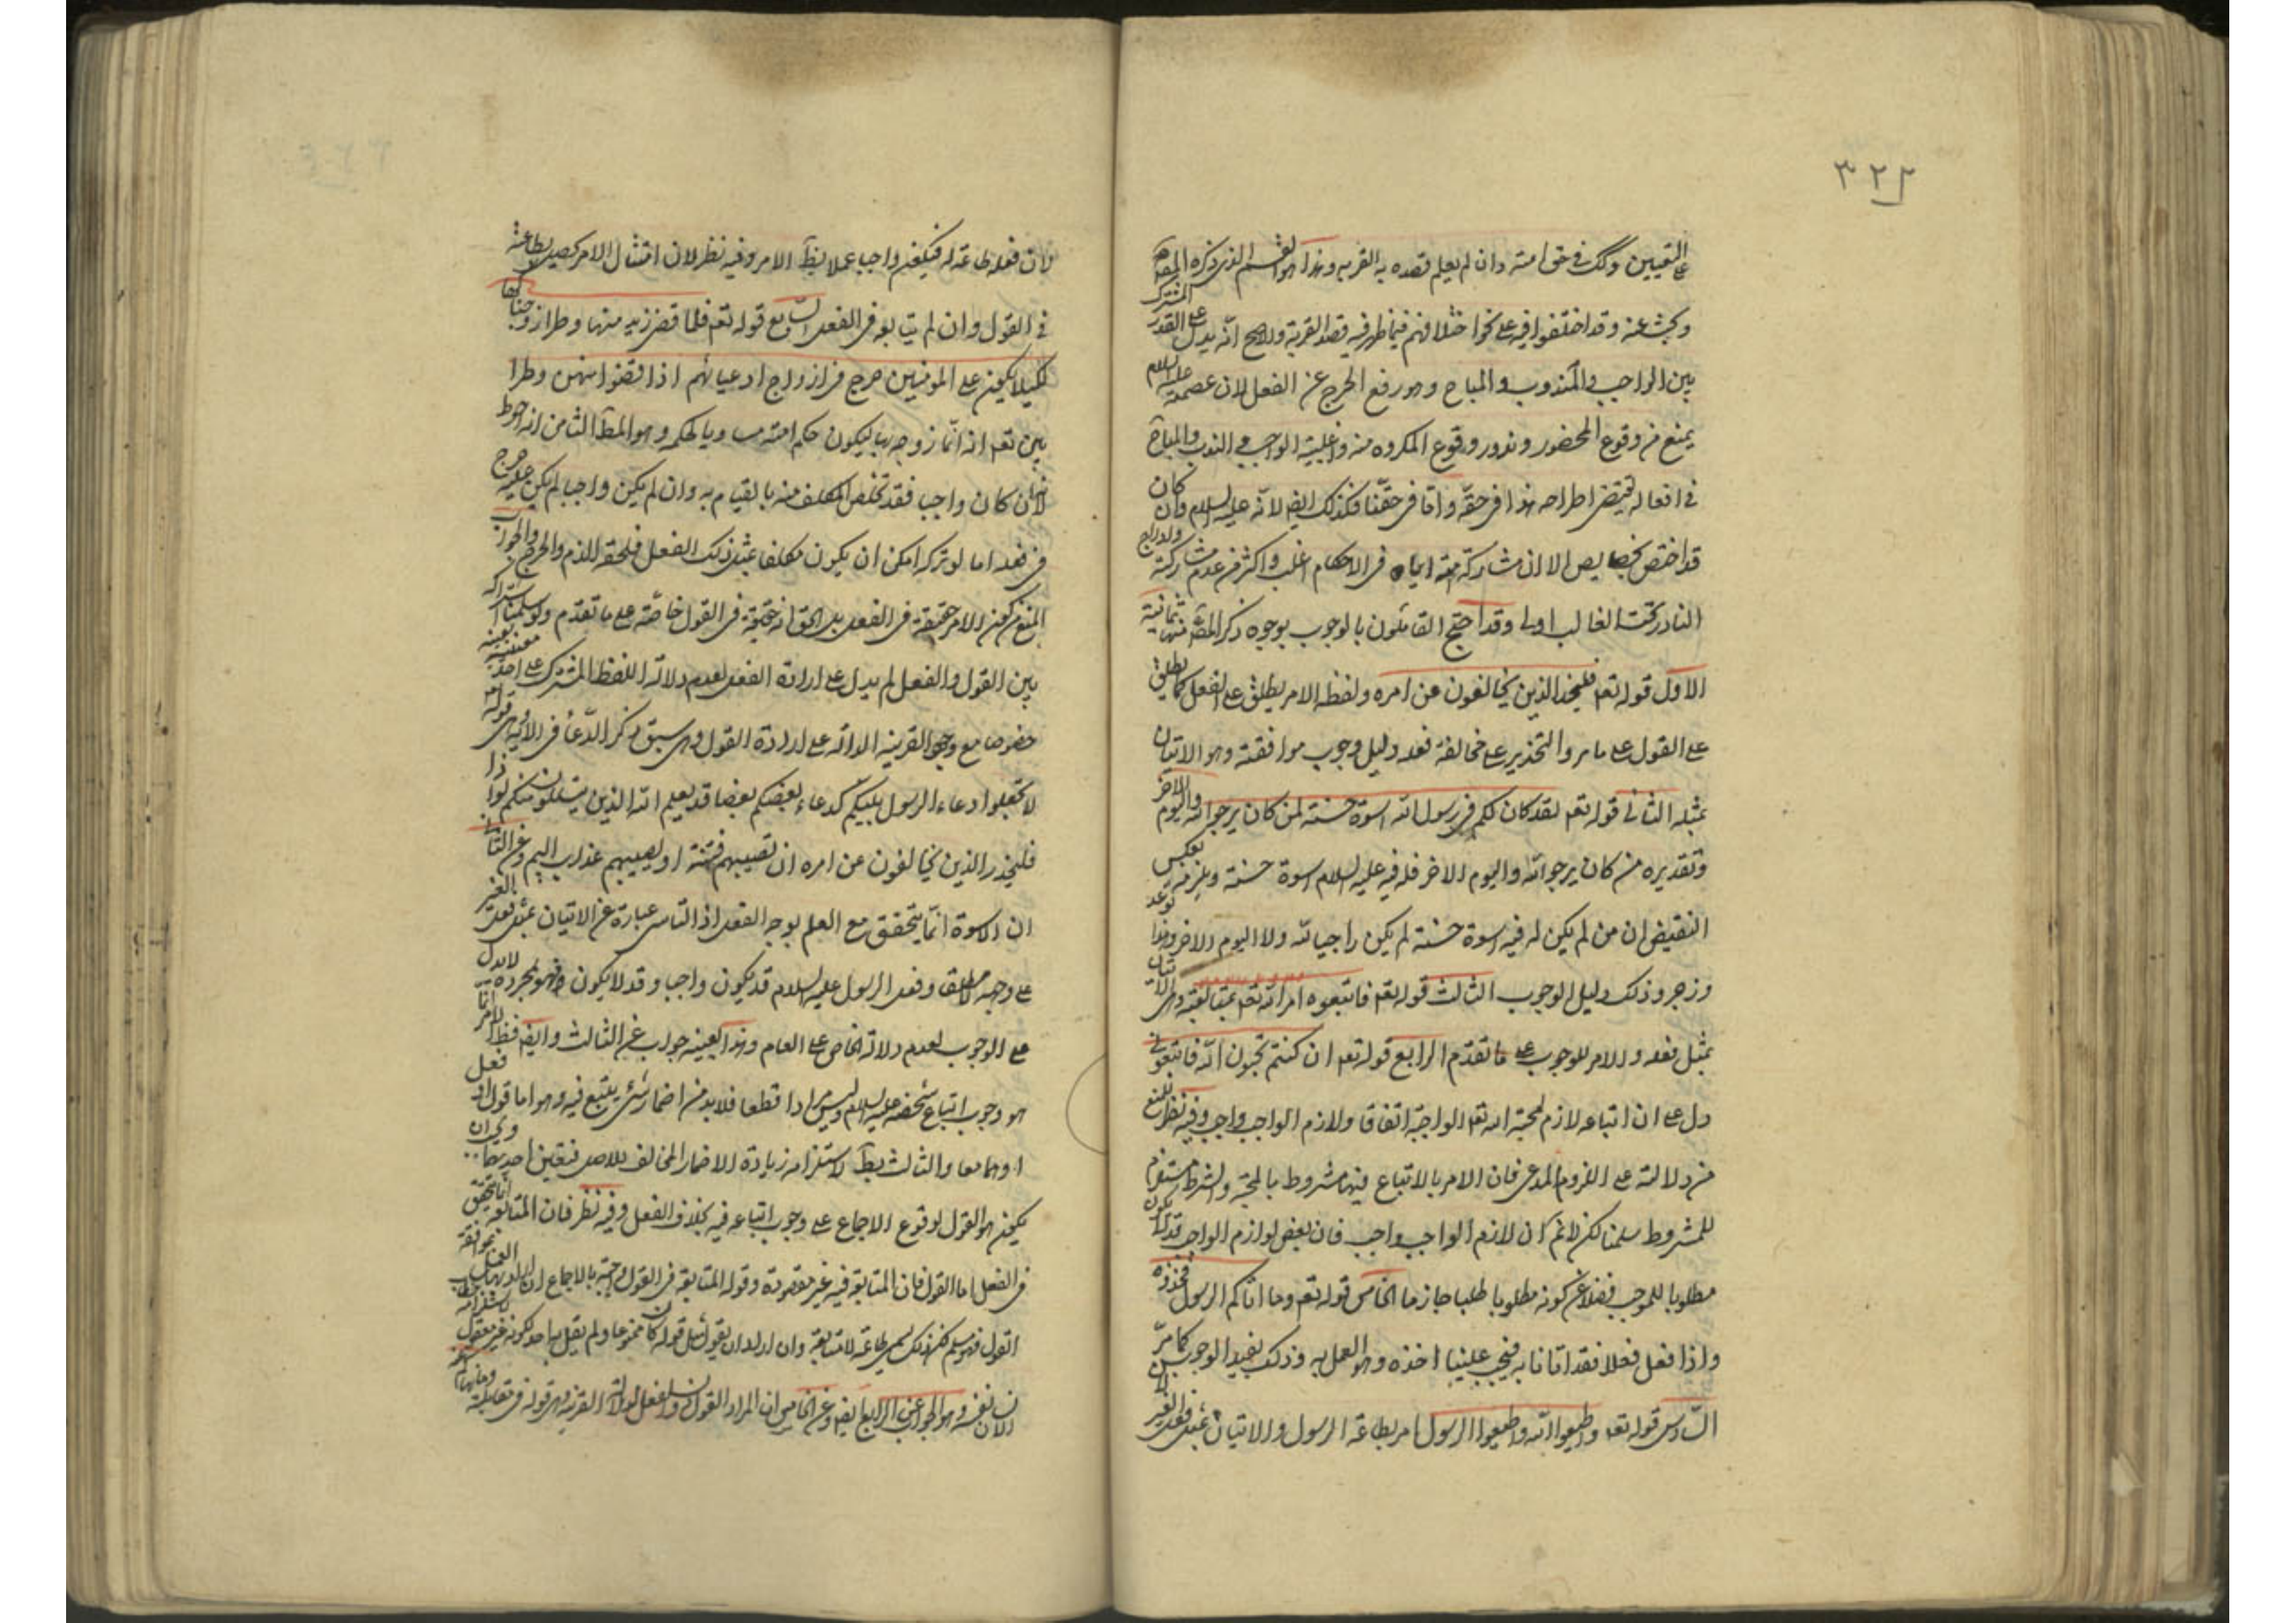 ٣٢٢
التعيين وكك في حق امته وان لم يعلم قصده به القربه وهذا هو القسم الذي ذكره المصـ
وبحث عنه وقد اختلفوا فيه على نحو اختلافهم فيما ظهر فيه قصد القربة والاصح انه يدل على القدر المشترك
بين الواجب والمندوب والمباح وهو رفع الحرج عن الفعل لان عصمته عليه السلام
يمنع من وقوع المحضور وندور وقوع المكروه منه واغلبية الواجب والندب والمباح
في افعاله تقتضى اطراحه هذا في حقه واما في حقنا فكذلك ايضا لانه عليه السلام وان كان
قد اختص بخصايص الا ان مشاركة امته اياه في الاحكام اغلب واكثر من عدم مشاركته وادراج
النادر تحت الغالب اولى وقد احتج القائلون بالوجوب بوجوه ذكر المصـ منها ثمانية
الاول قوله تعـ فليحذر الذين يخالفون عن امره ولفظ الامر يطلق على الفعل كما يطلق
على القول على ما مر والتحذير على مخالفة فعله دليل وجوب موافقته وهو الاتيان
بمثله الثاني قوله تعـ لقد كان لكم في رسول الله اسوة حسنة لمن كان يرجوا الله واليوم الاخر
وتقديره من كان يرجو الله واليوم الاخر فله فيه عليه السلام اسوة حسنة ويلزمه بعكس
النقيض ان من لم يكن له فيه اسوة حسنة لم يكن راجيا لله ولا اليوم الاخر وهذا توعد
وزجر وذلك دليل الوجوب الثالث قوله تعـ فاتبعوه امر الله تعـ بمتابعته وهي الاتيان
بمثل فعله والامر للوجوب على ما تقدم الرابع قوله تعـ ان كنتم تحبون الله فاتبعوني
دل على ان اتباعه لازم لمحبة الله تعـ الواجبة اتفاقا ولازم الواجب واجب وفيه نظر لمنع
من دلالته على اللزوم المدعى فان الامر بالاتباع فيها مشروط بالمحبة والشرط مستلزم
للمشروط سلمنا لكن لانم ان لازم الواجب واجب فان بعض لوازم الواجب قد لا يكون
مطلوبا للموجب فضلا عن كونه مطلوبا طلبا جازما الخامس قوله تعـ وما اتاكم الرسول فخذوه
واذا فعل فعلا فقد اتانا به فيجب علينا اخذه وهو العمل به وذلك يفيد الوجوب كما مر
السادس قوله تعـ واطيعوا الله واطيعوا الرسول امر بطاعة الرسول والاتيان بمثل فعل الغير
لان فعله طاعة له فيكون واجبا عملا بظـ الامر وفيه نظر لان امتثال الامر يحصل بطاعته
في القول وان لم يتابع في الفعل السابع قوله تعـ فلما قضى زيد منها وطرا زوجناكها
لكيلا يكون على المومنين حرج في ازواج ادعيائهم اذا قضوا منهن وطرا
بين تعـ انه انما زوجه بها ليكون حكم امته مساويا لحكمه وهو المطـ الثامن انه احوط
لانه ان كان واجبا فقد تخلص المكلف منه بالقيام به وان لم يكن واجبا لم يكن عليه حرج
في فعله اما لو تركه امكن ان يكون مكلفا بمثل ذلك الفعل فلحقه الذم والحرج والجواب
المنع من كون الامر حقيقة في الفعل بل الحق انه حقيقة في القول خاصة على ما تقدم ولو سلمنا اشتراكه
بين القول والفعل لم يدل على ارادة الفعل لعدم دلالة اللفظ المشترك على احد معنييه بعينه
خصوصا مع وجود القرينة الدالة على ارادة القول وهي سبق ذكر الدعأ في الاية وهي قوله
لا تجعلوا دعاء الرسول بينكم كدعاء بعضكم بعضا قد يعلم الله الذين يتسللون منكم لواذا
فليحذر الذين يخالفون عن امره ان تصيبهم فتنة او يصيبهم عذاب اليم وعن الثاني
ان الاسوة انما يتحقق مع العلم بوجه الفعل اذ التاسى عبارة عن الاتيان بمثل فعل الغير
على وجهه لا مطلقا وفعل الرسول عليه السلام قد يكون واجبا وقد لا يكون فهو بمجرده لا يدل
على الوجوب لعدم دلالة الخاص على العام وهذا بعينه جواب عن الثالث وايضا فظـ الامر انما
هو وجوب اتباع شخصه عليه السلام وليس مرادا قطعا فلا بد من اضمار شئ يتبع فيه وهو اما قول او فعل
او هما معا والثالث بطـ لاستلزامه زيادة الاضمار المخالف للاصل فتعين احدهما ويجب ان
يكون هو القول لوقوع الاجماع على وجوب اتباعه فيه بخلاف الفعل وفيه نظر فان المتابعة انما يتحقق
في الفعل اما القول فان المتابعة فيه غير مقصودة وقوله المتابعة في القول واجبة بالاجماع ان اراد بها
القول فهو مسلم لكن ذلك يسمى طاعة لا متابعة وان اراد ان يقول مثل قوله كان ممنوعا ولم يقل به احد لكونه غير معقول
وهو الجواب عن الرابع ايضا وعن الخامس ان المراد القول دون الفعل لدلالة القرينة وهي قوله في مقابلته